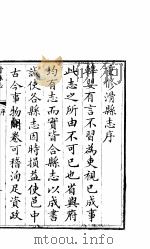 重修滑縣志序
語有言不習為吏視已成事
此志之所由不可已也省與府
均有志而實資合縣志以成書
誠使各縣志因時損益使邑中
古今事物開卷可稽洵足資政